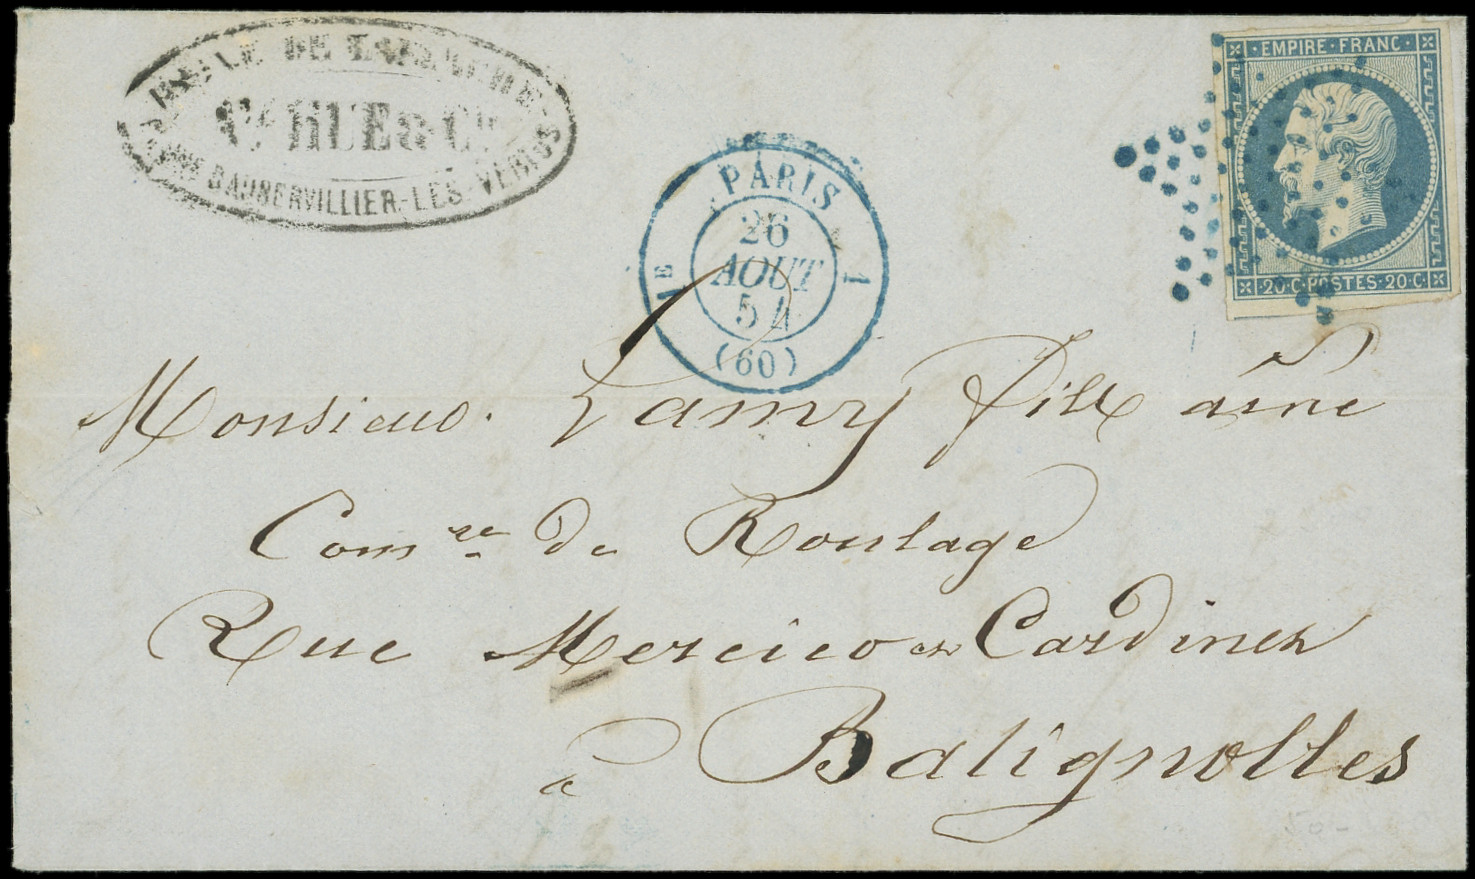 DE
HUE & Cie
D'AUBERVILLIER-LES-VERTUS
PARIS
1E
1
26
AOUT
54
(60)
EMPIRE · FRANC ·
20 · C · POSTES · 20 · C ·
Monsieur Lamy fils aîné
Comre de Roulage
Rue et Cardinet
à Batignolles
50 -